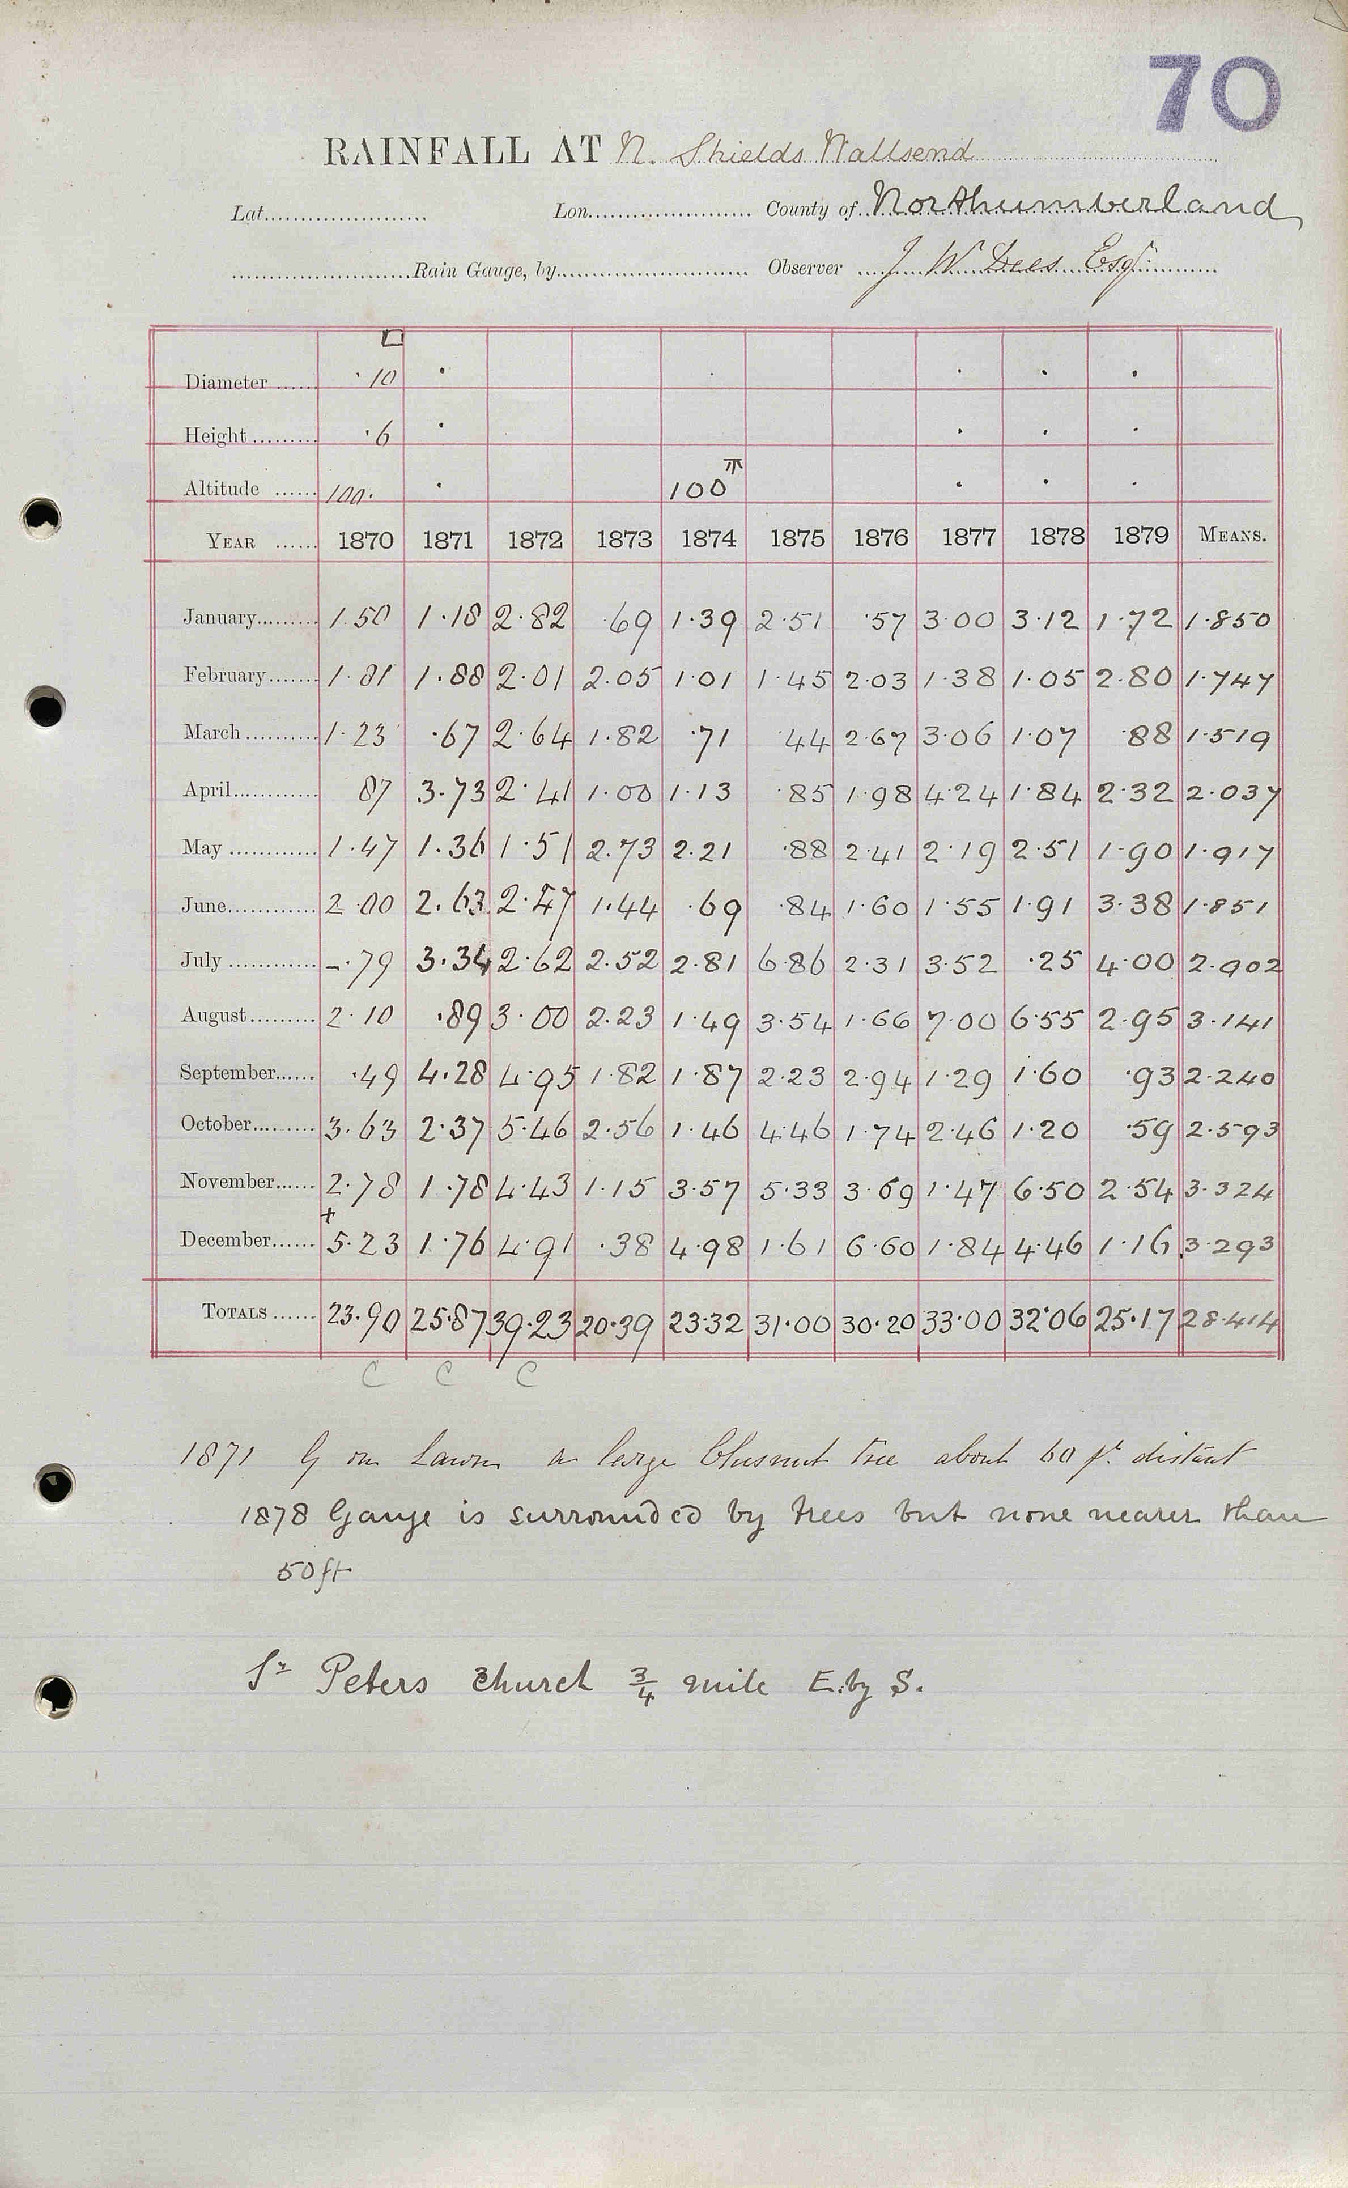 70
RAINFALL AT N. Shields Wallsend
Lat. Lon. County of Northumberland
Rain Gauge, by Observer J W Dees Esqr
Diameter 10
Height 6
Altitude 100 100
YEAR 1870 1871 1872 1873 1874 1875 1876 1877 1878 1879 MEANS.
January 1.50 1.18 2.82 .69 1.39 2.51 .57 3.00 3.12 1.72 1.850
February 1.81 1.88 2.01 2.05 1.01 1.45 2.03 1.38 1.05 2.80 1.747
March 1.23 .67 2.64 1.82 .71 44 2.67 3.06 1.07 .88 1.519
April 87 3.73 2.41 1.00 1.13 .85 1.98 4.24 1.84 2.32 2.037
May 1.47 1.36 1.51 2.73 2.21 .88 2.41 2.19 2.51 1.90 1.917
June 2.00 2.63 2.47 1.44 .69 .84 1.60 1.55 1.91 3.38 1.851
July -.79 3.34 2.62 2.52 2.81 6.86 2.31 3.52 .25 4.00 2.902
August 2.10 .89 3.00 2.23 1.49 3.54 1.66 7.00 6.55 2.95 3.141
September .49 4.28 4.95 1.82 1.87 2.23 2.94 1.29 1.60 .93 2.240
October 3.63 2.37 5.46 2.56 1.46 4.46 1.74 2.46 1.20 .59 2.593
November 2.78 1.78 4.43 1.15 3.57 5.33 3.69 1.47 6.50 2.54 3.324
+
December 5.23 1.76 4.91 .38 4.98 1.61 6.60 1.84 4.46 1.16 3.293
TOTALS 23.90 25.87 39.23 20.39 23.32 31.00 30.20 33.00 32.06 25.17 28.414
C C C
1871 G on Lawn a large Chesnut tree about 60 ft. distant
1878 Gauge is surrounded by trees but none nearer than
50ft
St Peters Church 3/4 mile E. by S.